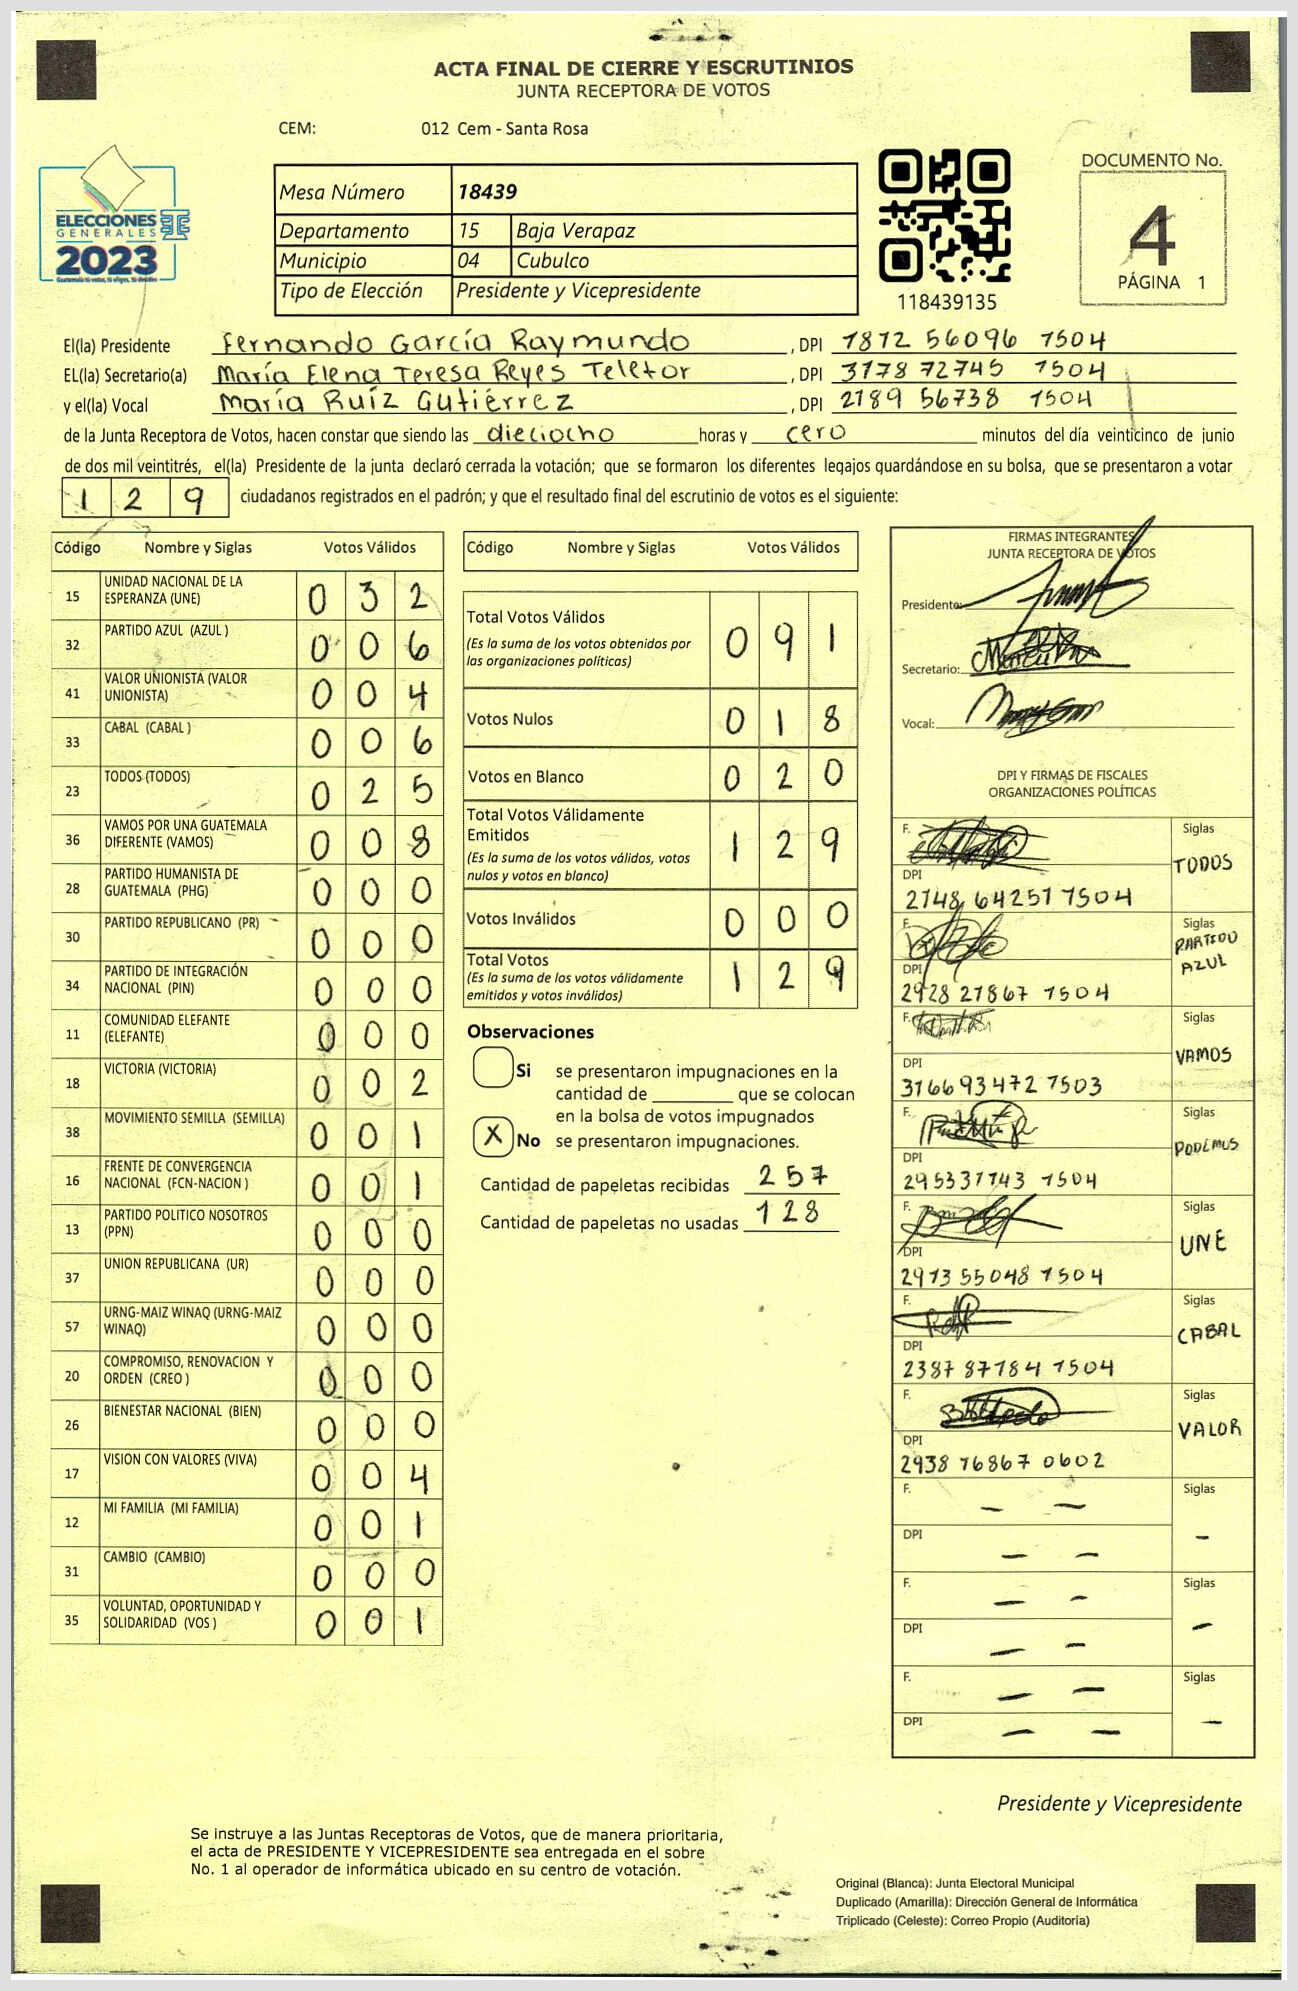 ACTA FINAL DE CIERRE Y ESCRUTINIOS
JUNTA RECEPTORA DE VOTOS
CEM: 012 Cem - Santa Rosa
ELECCIONES
GENERALES
2023
Mesa Número 18439
Departamento 15 Baja Verapaz
Municipio 04 Cubulco
Tipo de Elección Presidente y Vicepresidente
118439135
DOCUMENTO No.
4
PÁGINA 1
El(la) Presidente Fernando García Raymundo , DPI 1872 56096 1504
EL(la) Secretario(a) María Elena Teresa Reyes Teletor , DPI 3178 72745 1504
y el(la) Vocal María Ruíz Gutiérrez , DPI 2189 56738 1504
de la Junta Receptora de Votos, hacen constar que siendo las dieciocho horas y cero minutos del día veinticinco de junio
de dos mil veintitrés, el(la) Presidente de la junta declaró cerrada la votación; que se formaron los diferentes legajos guardándose en su bolsa, que se presentaron a votar
1 2 9 ciudadanos registrados en el padrón; y que el resultado final del escrutinio de votos es el siguiente:
Código Nombre y Siglas Votos Válidos
15 UNIDAD NACIONAL DE LA
ESPERANZA (UNE) 0 3 2
32 PARTIDO AZUL (AZUL ) 0 0 6
41 VALOR UNIONISTA (VALOR
UNIONISTA) 0 0 4
33 CABAL (CABAL ) 0 0 6
23 TODOS (TODOS) 0 2 5
36 VAMOS POR UNA GUATEMALA
DIFERENTE (VAMOS) 0 0 8
28 PARTIDO HUMANISTA DE
GUATEMALA (PHG) 0 0 0
30 PARTIDO REPUBLICANO (PR) 0 0 0
34 PARTIDO DE INTEGRACIÓN
NACIONAL (PIN) 0 0 0
11 COMUNIDAD ELEFANTE
(ELEFANTE) 0 0 0
18 VICTORIA (VICTORIA) 0 0 2
38 MOVIMIENTO SEMILLA (SEMILLA) 0 0 1
16 FRENTE DE CONVERGENCIA
NACIONAL (FCN-NACION ) 0 0 1
13 PARTIDO POLITICO NOSOTROS
(PPN) 0 0 0
37 UNION REPUBLICANA (UR) 0 0 0
57 URNG-MAIZ WINAQ (URNG-MAIZ
WINAQ) 0 0 0
20 COMPROMISO, RENOVACION Y
ORDEN (CREO ) 0 0 0
26 BIENESTAR NACIONAL (BIEN) 0 0 0
17 VISION CON VALORES (VIVA) 0 0 4
12 MI FAMILIA (MI FAMILIA) 0 0 1
31 CAMBIO (CAMBIO) 0 0 0
35 VOLUNTAD, OPORTUNIDAD Y
SOLIDARIDAD (VOS ) 0 0 1
Código Nombre y Siglas Votos Válidos
Total Votos Válidos
(Es la suma de los votos obtenidos por
las organizaciones políticas) 0 9 1
Votos Nulos 0 1 8
Votos en Blanco 0 2 0
Total Votos Válidamente
Emitidos
(Es la suma de los votos válidos, votos
nulos y votos en blanco) 1 2 9
Votos Inválidos 0 0 0
Total Votos
(Es la suma de los votos válidamente
emitidos y votos inválidos) 1 2 9
Observaciones
Si se presentaron impugnaciones en la
cantidad de ________ que se colocan
en la bolsa de votos impugnados
X No se presentaron impugnaciones.
Cantidad de papeletas recibidas 257
Cantidad de papeletas no usadas 128
FIRMAS INTEGRANTES
JUNTA RECEPTORA DE VOTOS
Presidente:
Secretario:
Vocal:
DPI Y FIRMAS DE FISCALES
ORGANIZACIONES POLÍTICAS
F. Siglas
TODOS
DPI
2748 64257 1504
F. Siglas
PARTIDO
AZUL
DPI
2928 27867 1504
F. Siglas
VAMOS
DPI
3166 93472 1503
F. Siglas
PODEMOS
DPI
295337743 1504
F. Siglas
UNE
DPI
2973 55048 1504
F. Siglas
CABAL
DPI
2387 87784 1504
F. Siglas
VALOR
DPI
2938 76867 0602
F. — — Siglas
DPI — — —
F. — — Siglas
DPI — — —
F. — — Siglas
DPI — — —
Presidente y Vicepresidente
Se instruye a las Juntas Receptoras de Votos, que de manera prioritaria,
el acta de PRESIDENTE Y VICEPRESIDENTE sea entregada en el sobre
No. 1 al operador de informática ubicado en su centro de votación.
Original (Blanca): Junta Electoral Municipal
Duplicado (Amarilla): Dirección General de Informática
Triplicado (Celeste): Correo Propio (Auditoría)